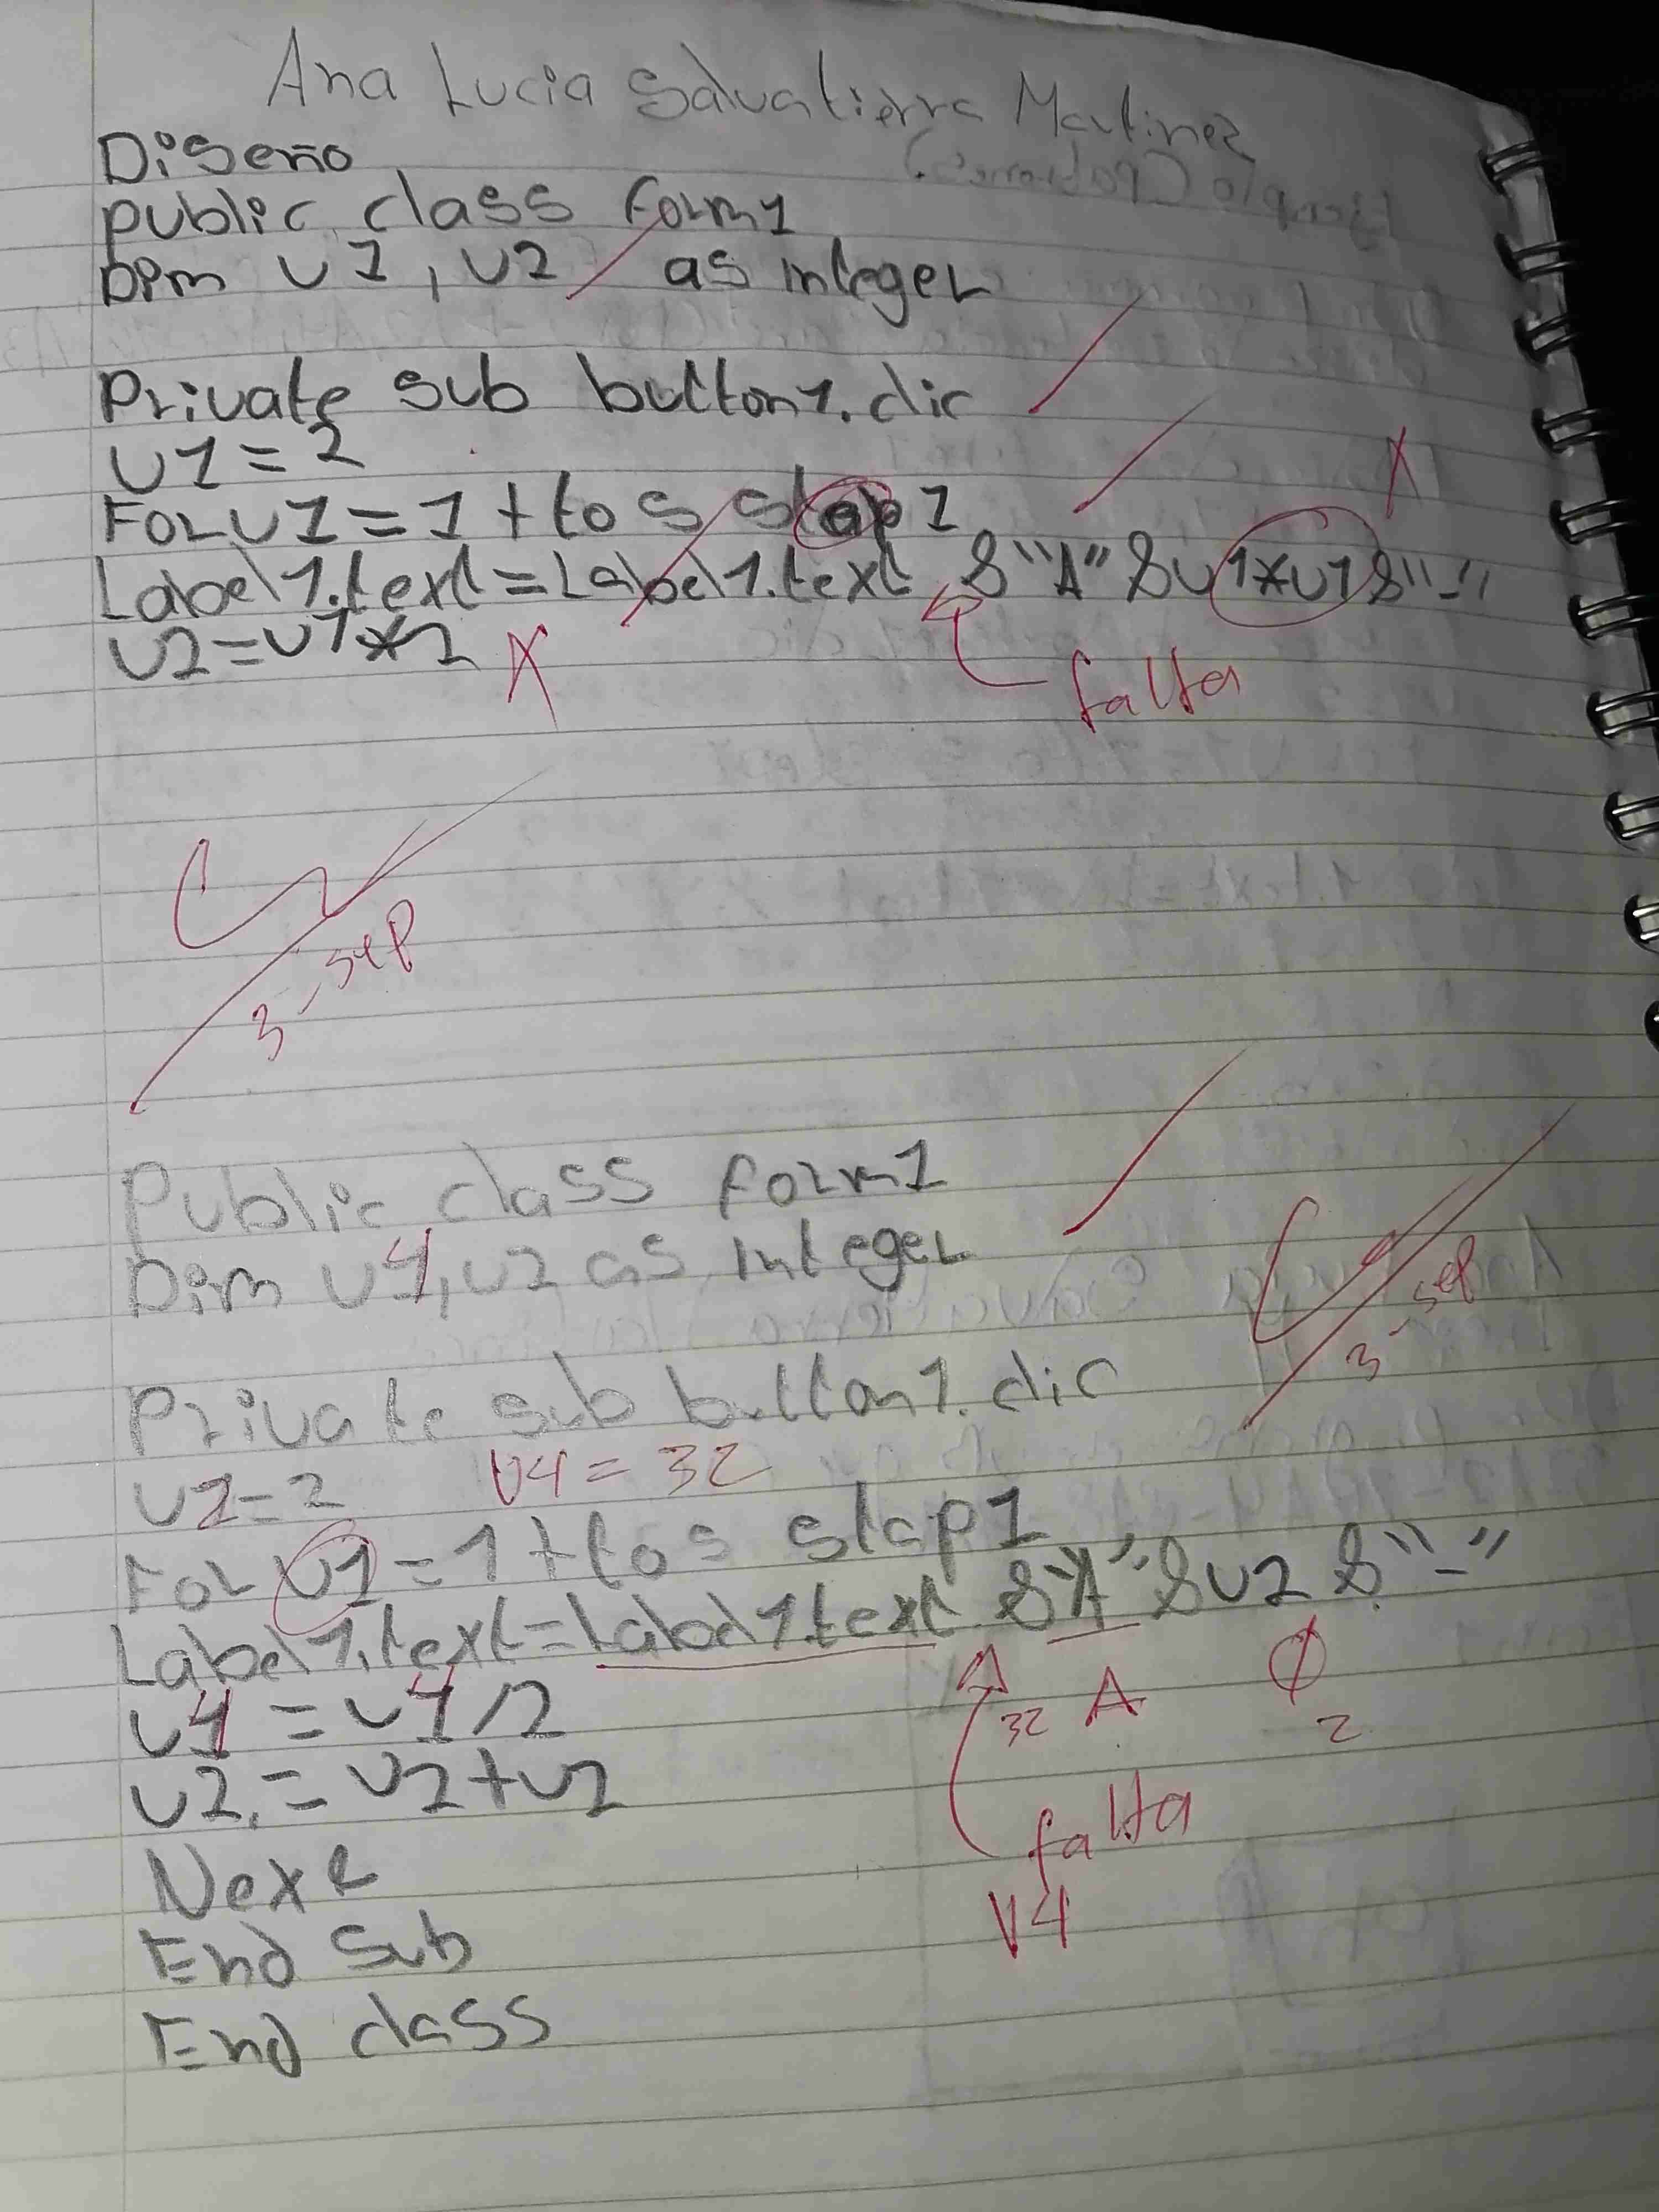 Ana Lucia Salvatierra Martinez
Diseño
public class form1
Dim v1, v2 as integer
Private sub button1.clic
v1=2
For v1=1 to 5 step 1
Label1.text=Label1.text & "A" & v1*v1 & "-"
v2=v1*2
X
X
falta
3-sep
Public class form1
Dim v4, v2 as integer
3-sep
Private sub button1.clic
v2=2 V4=32
For v1=1 to 5 step 1
Label1.text=Label1.text & "A" & v2 & "-"
32 A 2
v4=v4/2
v2=v2+v2
falta
V4
Next
End Sub
End class